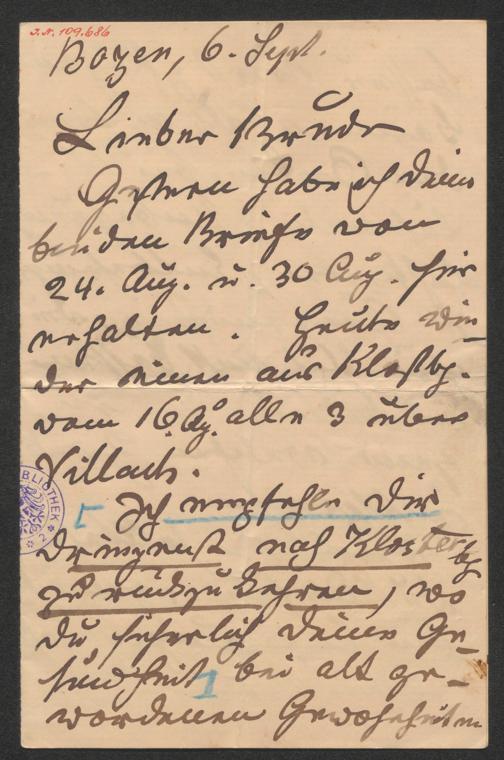 J.N. 109.686
Bozen, 6. Sept.
Lieber Bruder
Gestern habe ich deine
beiden Briefe von
24. Aug. u. 30 Aug. hier
erhalten. Heute wie-
der einen aus Klostbg.
vom 16. Ag. alle 3 über
Villach.
BIBLIOTHEK
Ich empfehle dir
dringenst nach Klosterbg
zurückzukehren, wo
du sicherlich deine Ge
sundheit bei alt ge-
wordenen Gewohnheiten